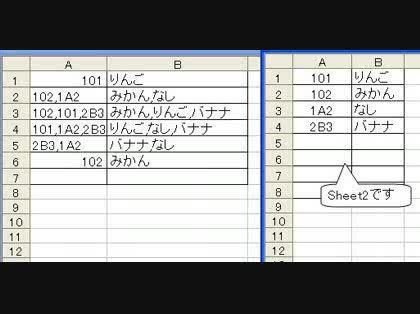 A B
1 101 りんご
2 102,1A2 みかん,なし
3 102,101,2B3 みかん,りんご,バナナ
4 101,1A2,2B3 りんご,なし,バナナ
5 2B3,1A2 バナナ,なし
6 102 みかん
7
8
9
10
11
12
A B
1 101 りんご
2 102 みかん
3 1A2 なし
4 2B3 バナナ
5
6
7
8 Sheet2です
9
10
11
12